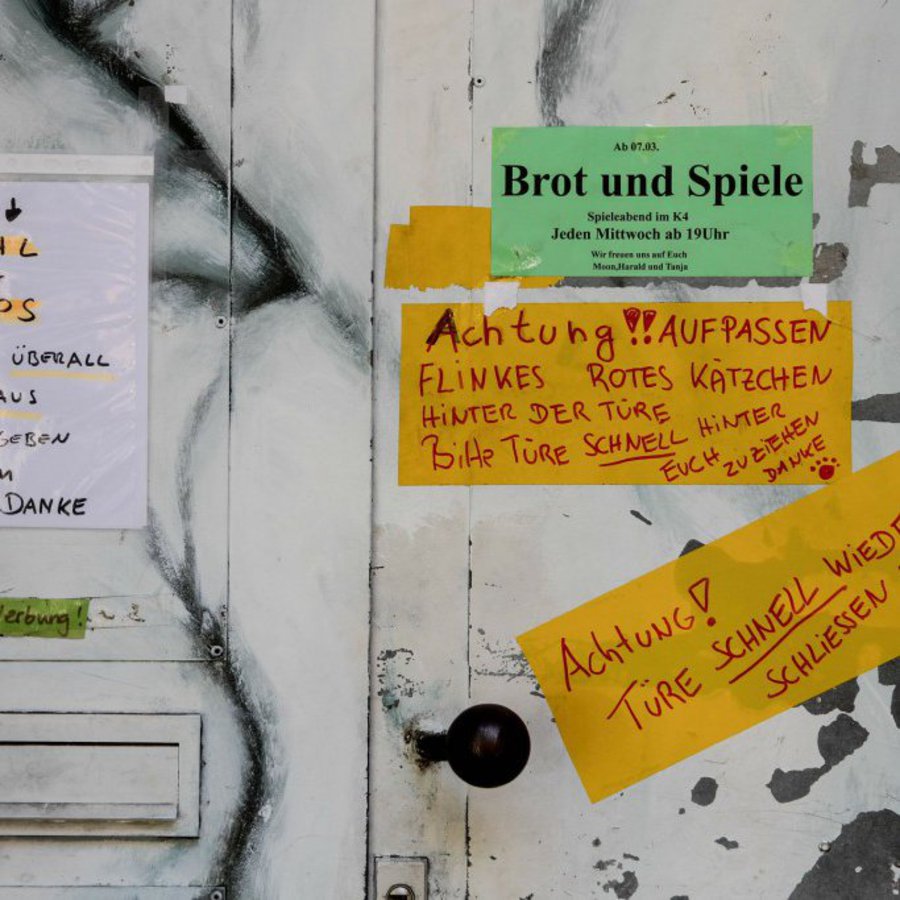 ÜBERALL
DANKE
Werbung!
Ab 07.03.
Brot und Spiele
Spieleabend im K4
Jeden Mittwoch ab 19Uhr
Wir freuen uns auf Euch
Moon,Harald und Tanja
Achtung!! AUFPASSEN
FLINKES ROTES KÄTZCHEN
HINTER DER TÜRE
Bitte TÜRE SCHNELL HINTER
EUCH ZUZIEHEN
DANKE
Achtung!
TÜRE SCHNELL
SCHLIESSEN